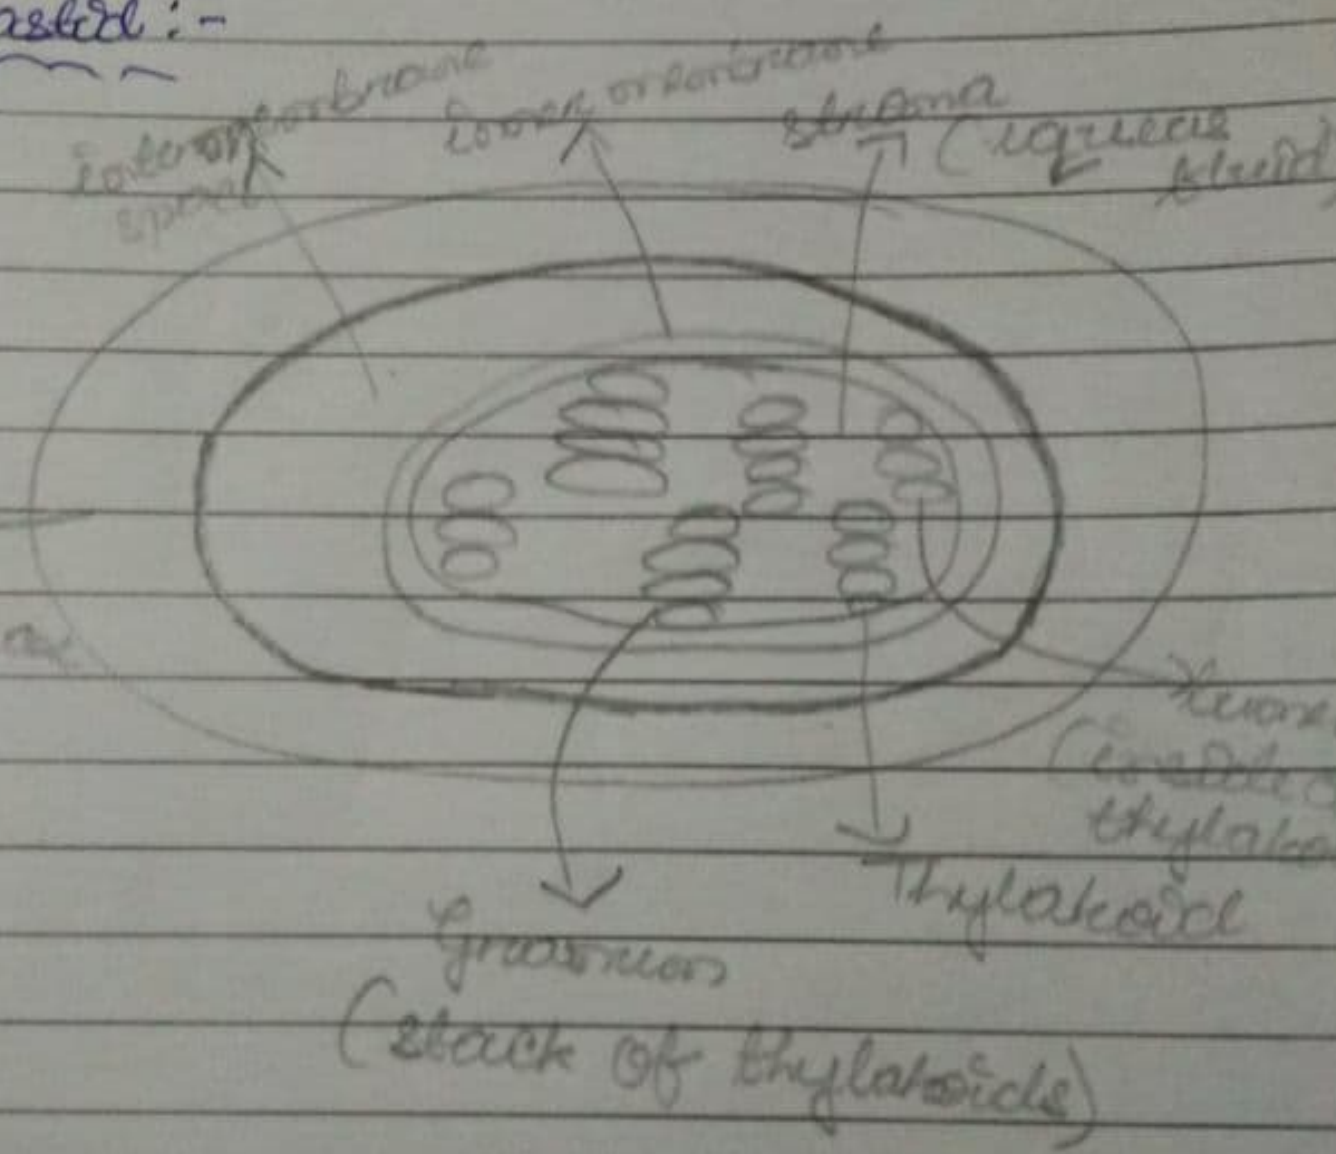 intermembrane
space
inner membrane
stroma
(aqueous
fluid)
(inside o
thylako
Thylakoid
Granum
(stack of thylakoids)